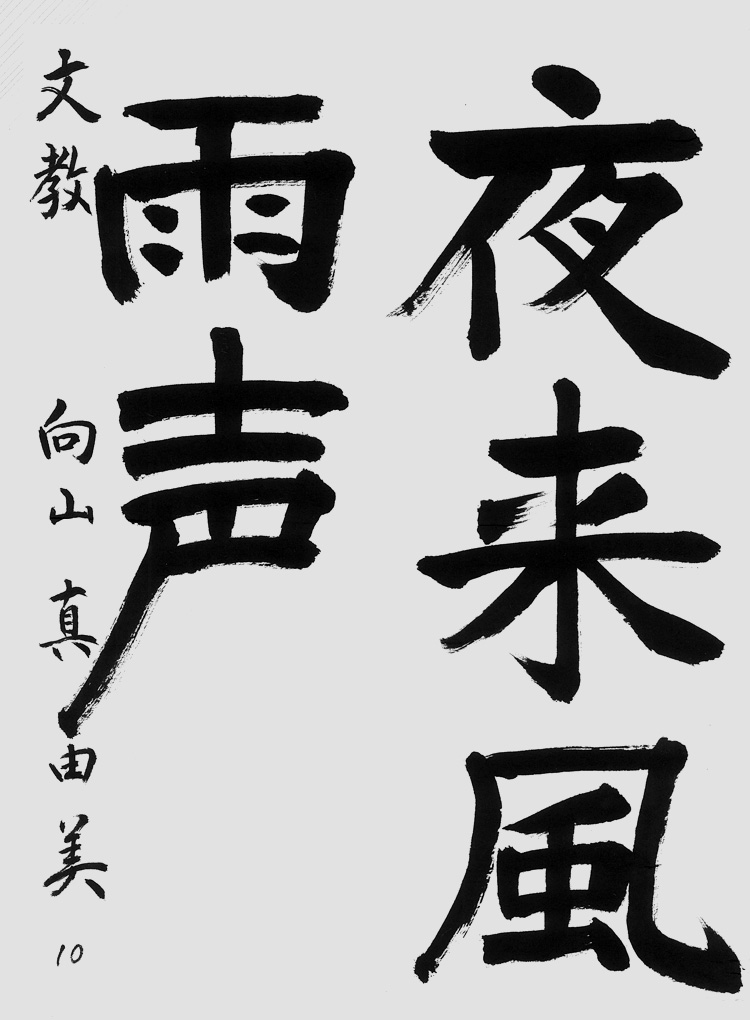 夜来風
雨声
文教 向山真由美 10